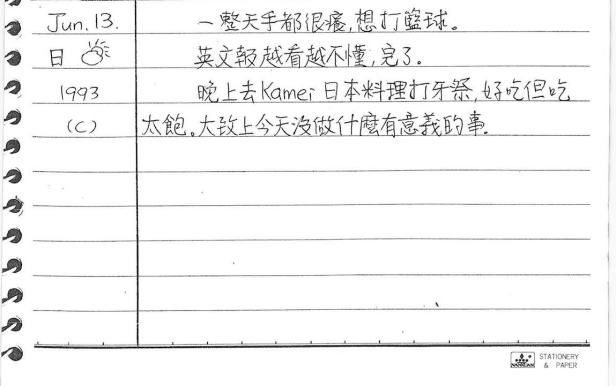 Jun. 13. 一整天手都很癢,想打籃球。
日 英文報越看越不懂,完了。
1993 晚上去Kamei日本料理打牙祭,好吃但吃
(C) 太飽。大致上今天沒做什麼有意義的事.
STATIONERY
& PAPER